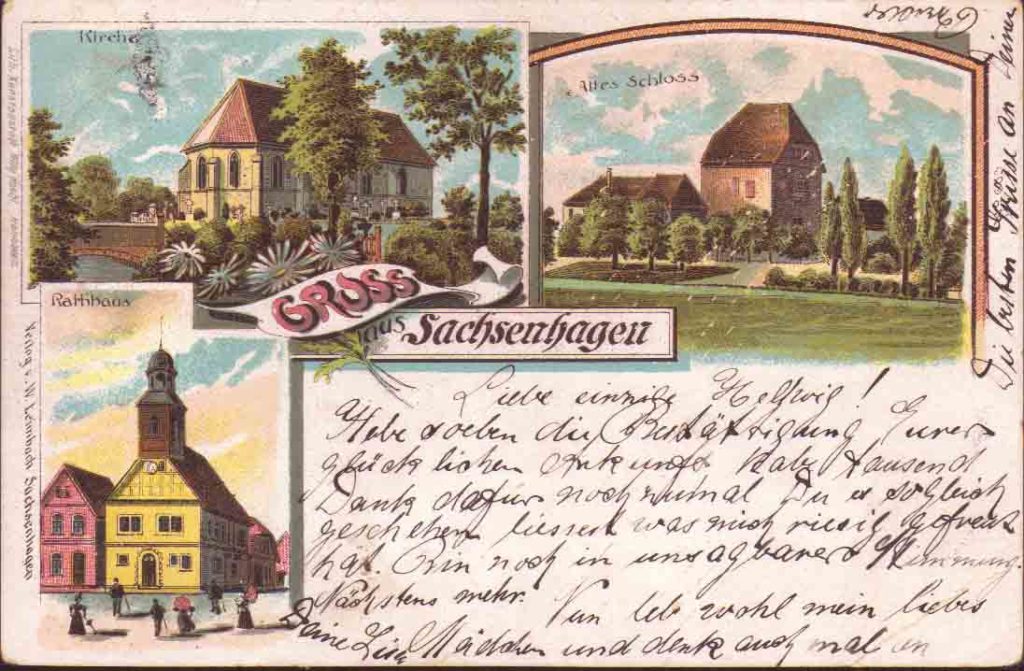 Kirche
Altes Schloss
Rathhaus
GRUSS
aus Sachsenhagen
Verlag v. W. Leimbach, Sachsenhagen
Liebe einzige Hellwig!
Habe soeben die Bestätigung Eurer
glücklichen Ankunft habe tausend
Dank dafür noch zumal Du es sogleich
geschehen liessest was mich riesig gefreut
hat. Bin noch in unsagbarer Stimmung.
Nächstens mehr. Nun leb wohl mein liebes
Mädchen und denk auch mal an
Deine
Die besten Grüsse an Deine